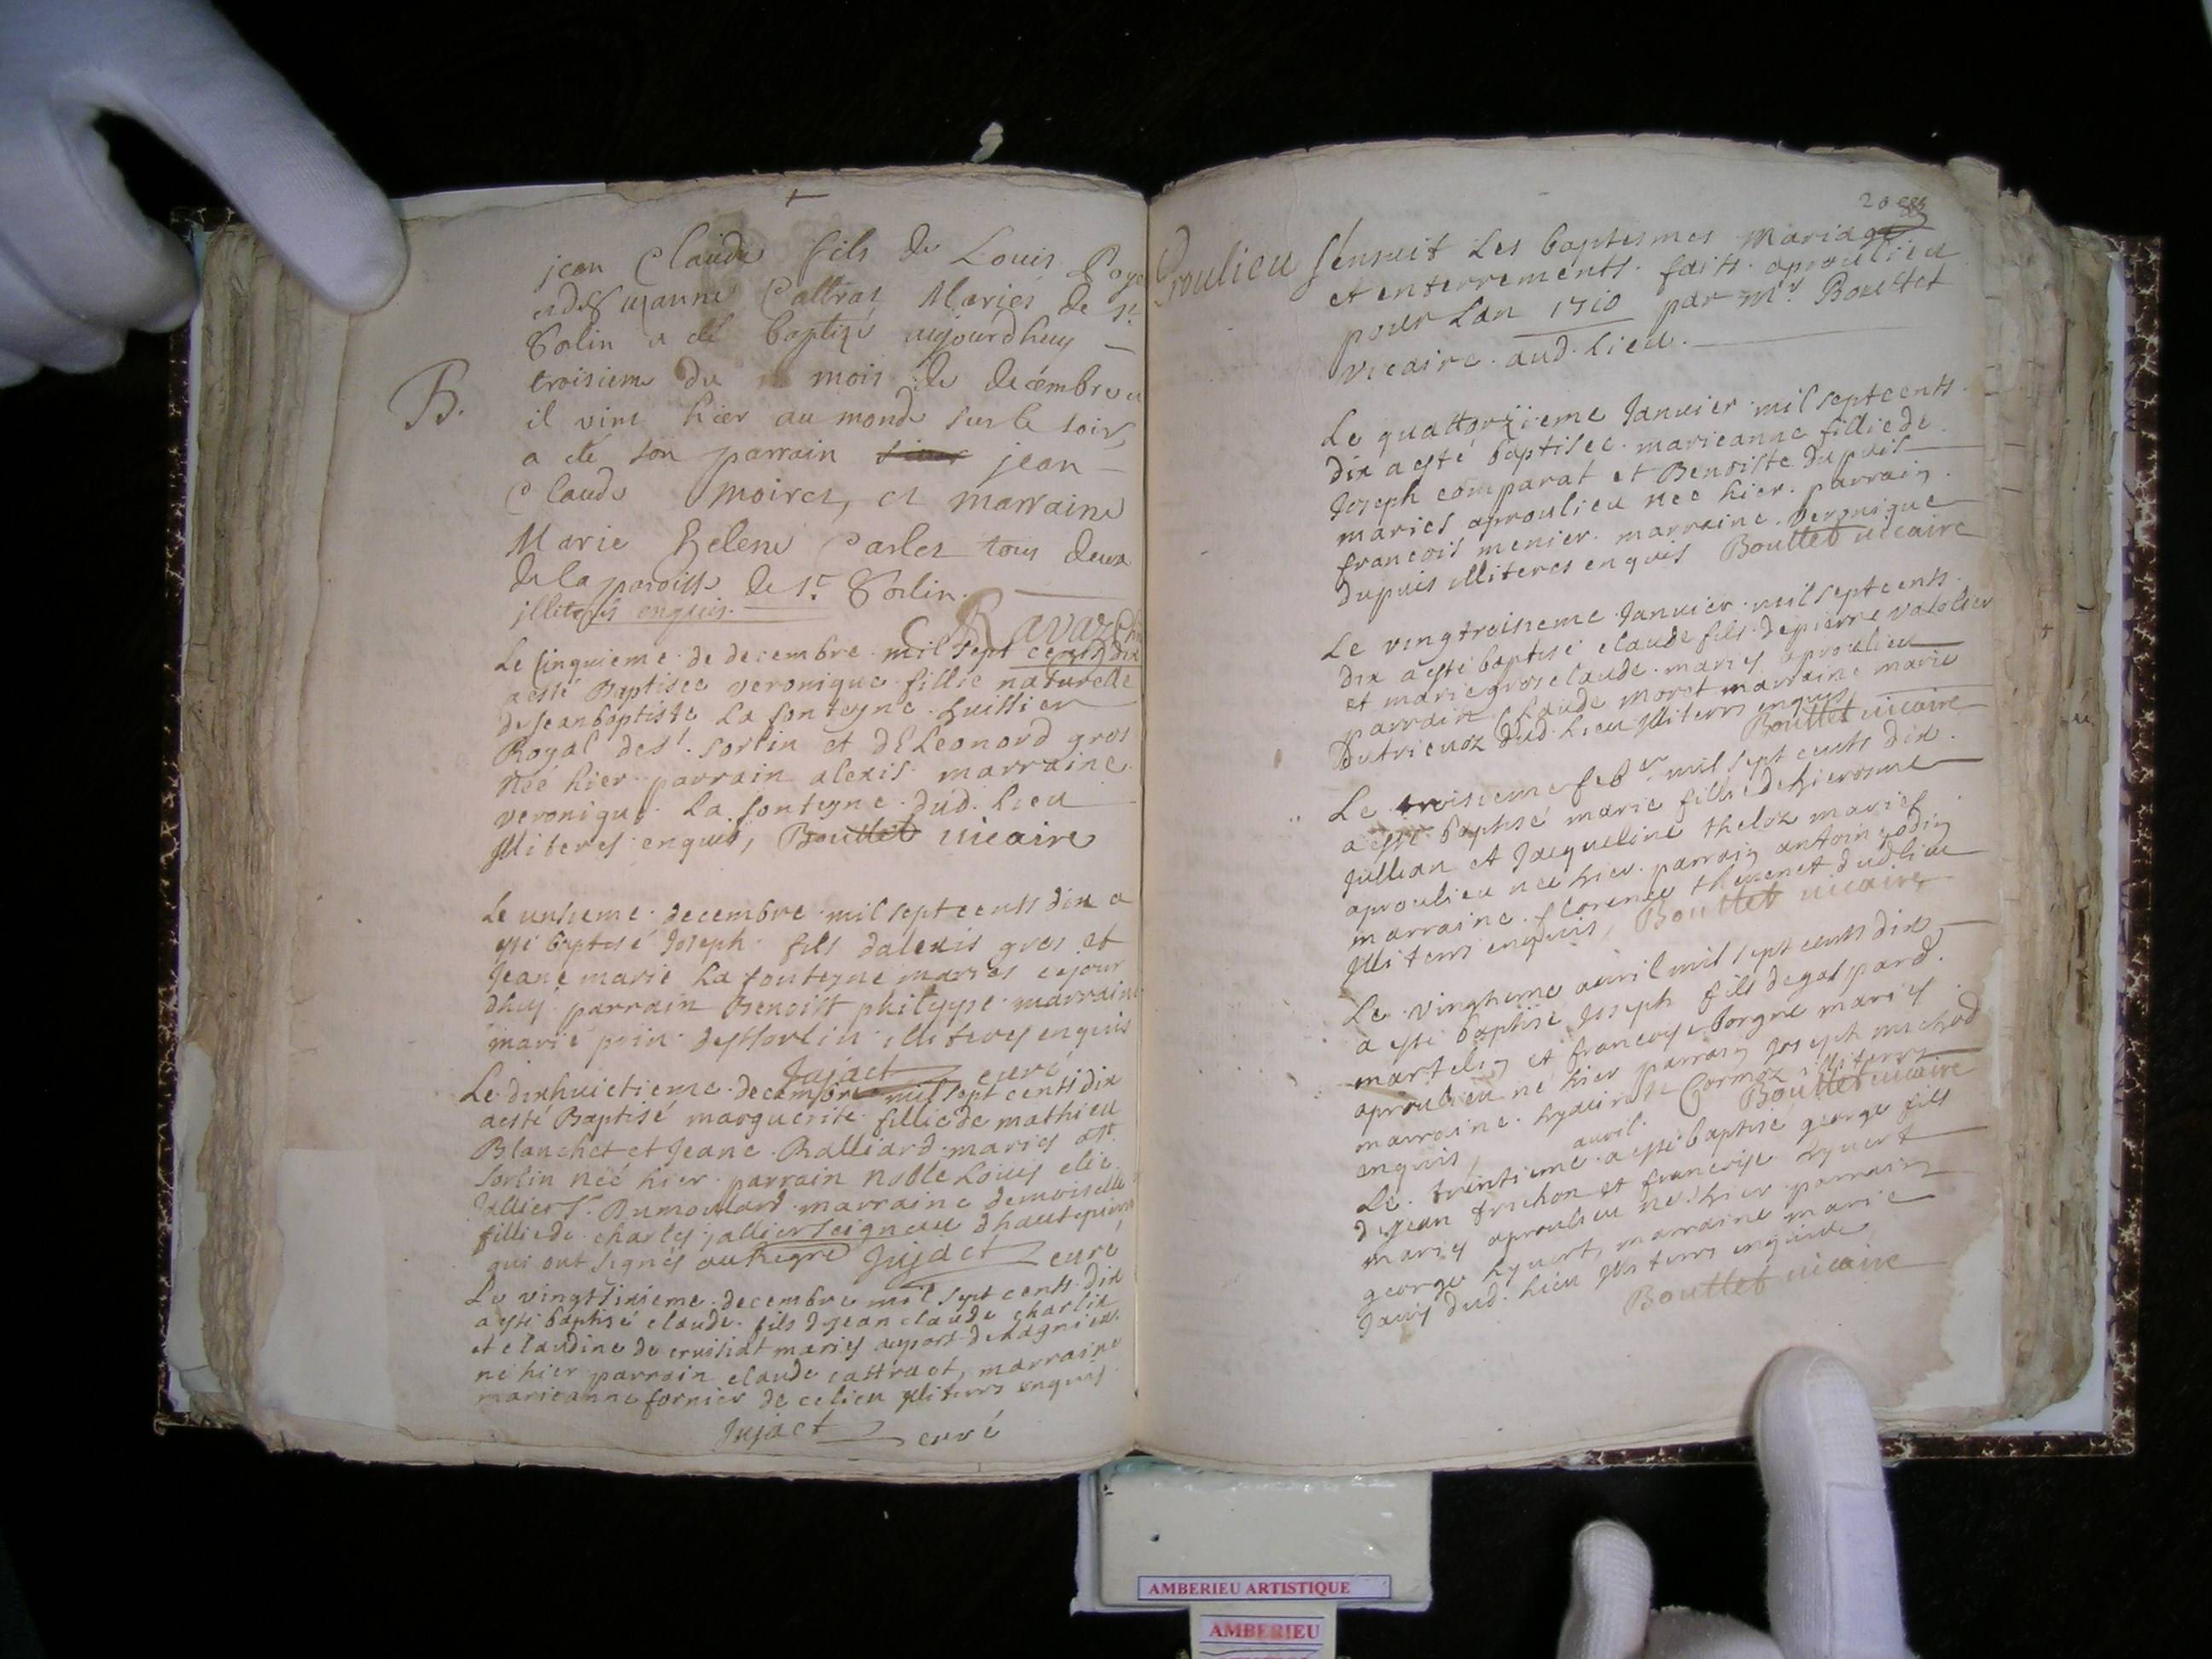 jean Claude fils de Louis Roye
et de Suzanne Cattras Mariés de St
Sorlin a été baptizé aujourdhuy
troisieme du mois de decembre
il vint hier au monde sur le soir,
B.
a été son parrain jean
Claude moiret, et marraine
Marie helene Carles tous deux
de la paroisse de St Sorlin.
illiterés enquis.
C Ravaz
Le sinquieme de decembre mil sept cents dix
a esté Baptisee veronique fillie naturelle
de Jean baptiste La fonteyne huissier
Royal de st. sorlin et de Leonord gros
née hier parrain alexis marraine
veronique La fonteyne dud. Lieu
Illiteres enquis, Bouttet vicaire
Le unsieme decembre mil sept cents dix a
esté baptisé Joseph fils dalexis gros et
Jeane marie La fonteyne maries cejour
dhuy parrain Benoist philippe marraine
marie poin de st sorlin illiterés enquis
Jujact curé
Le dixhuictieme decembre mil sept cents dix
a esté Baptisé marguerite fillie de mathieu
Blanchet et Jeane Ralliard maries a st
sorlin née hier parrain noble Louys elie
Jallier Sr. Dumoulard marraine demoiselle
fillie de charles jallier seigneur dhautepierre
qui ont signés au Regre Jujact curé
Le vingtsixieme decembre mil sept cents dix
a esté baptisé claude fils de jean claude charlin
et claudine de cruisiat mariés au port de Lagnieu
né hier parrain claude cattract, marraine
marieanne fornier de celieu Illiterés enquis
Jujact curé
20
Proulieu Sensuit Les baptesmes Mariage
et enterrements faits a proulieu
pour Lan 1710 par mr Bouttet
vicaire aud. Lieu.
Le quattorzieme Janvier mil sept cents
dix a esté baptisee marieanne fillie de
Joseph comparat et Benoiste dupuis
maries a proulieu née hier parrain
francois menier marraine veronique
dupuis illiteres enquis Bouttet vicaire
Le vingtroisieme Janvier mil sept cents
dix a esté baptisé claude fils de pierre vatolier
et marie grosclaude mariés a proulieu
parrain Claude morat marraine marie
Dutrieuoz dud. Lieu Illiterés enquis
Bouttet vicaire
Le troisieme feber mil sept cents dix
a esté baptisé marie fillie de hierosme
Jullian et Jacqueline theloz mariés
a proulieu née hier parrain antoine godin
marraine florence thevenet dud lieu
Illiterés enquis, Bouttet vicaire
Le vingtieme avril mil sept cents dix
a esté baptisé Joseph fils de gaspard
martelin et francoyse borgne mariés
a proulieu né hier parrain joseph michod
marraine hyacinte Cormoz illiterés
enquis, Bouttet vicaire
Le trentieme avril a esté baptisé george fils
de Jean frichon et francoyse hyvert
mariés a proulieu né hier parrain
george hyvert, marraine marie
Janis dud. Lieu Illiterés enquise
Bouttet vicaire
AMBERIEU ARTISTIQUE
AMBERIEU